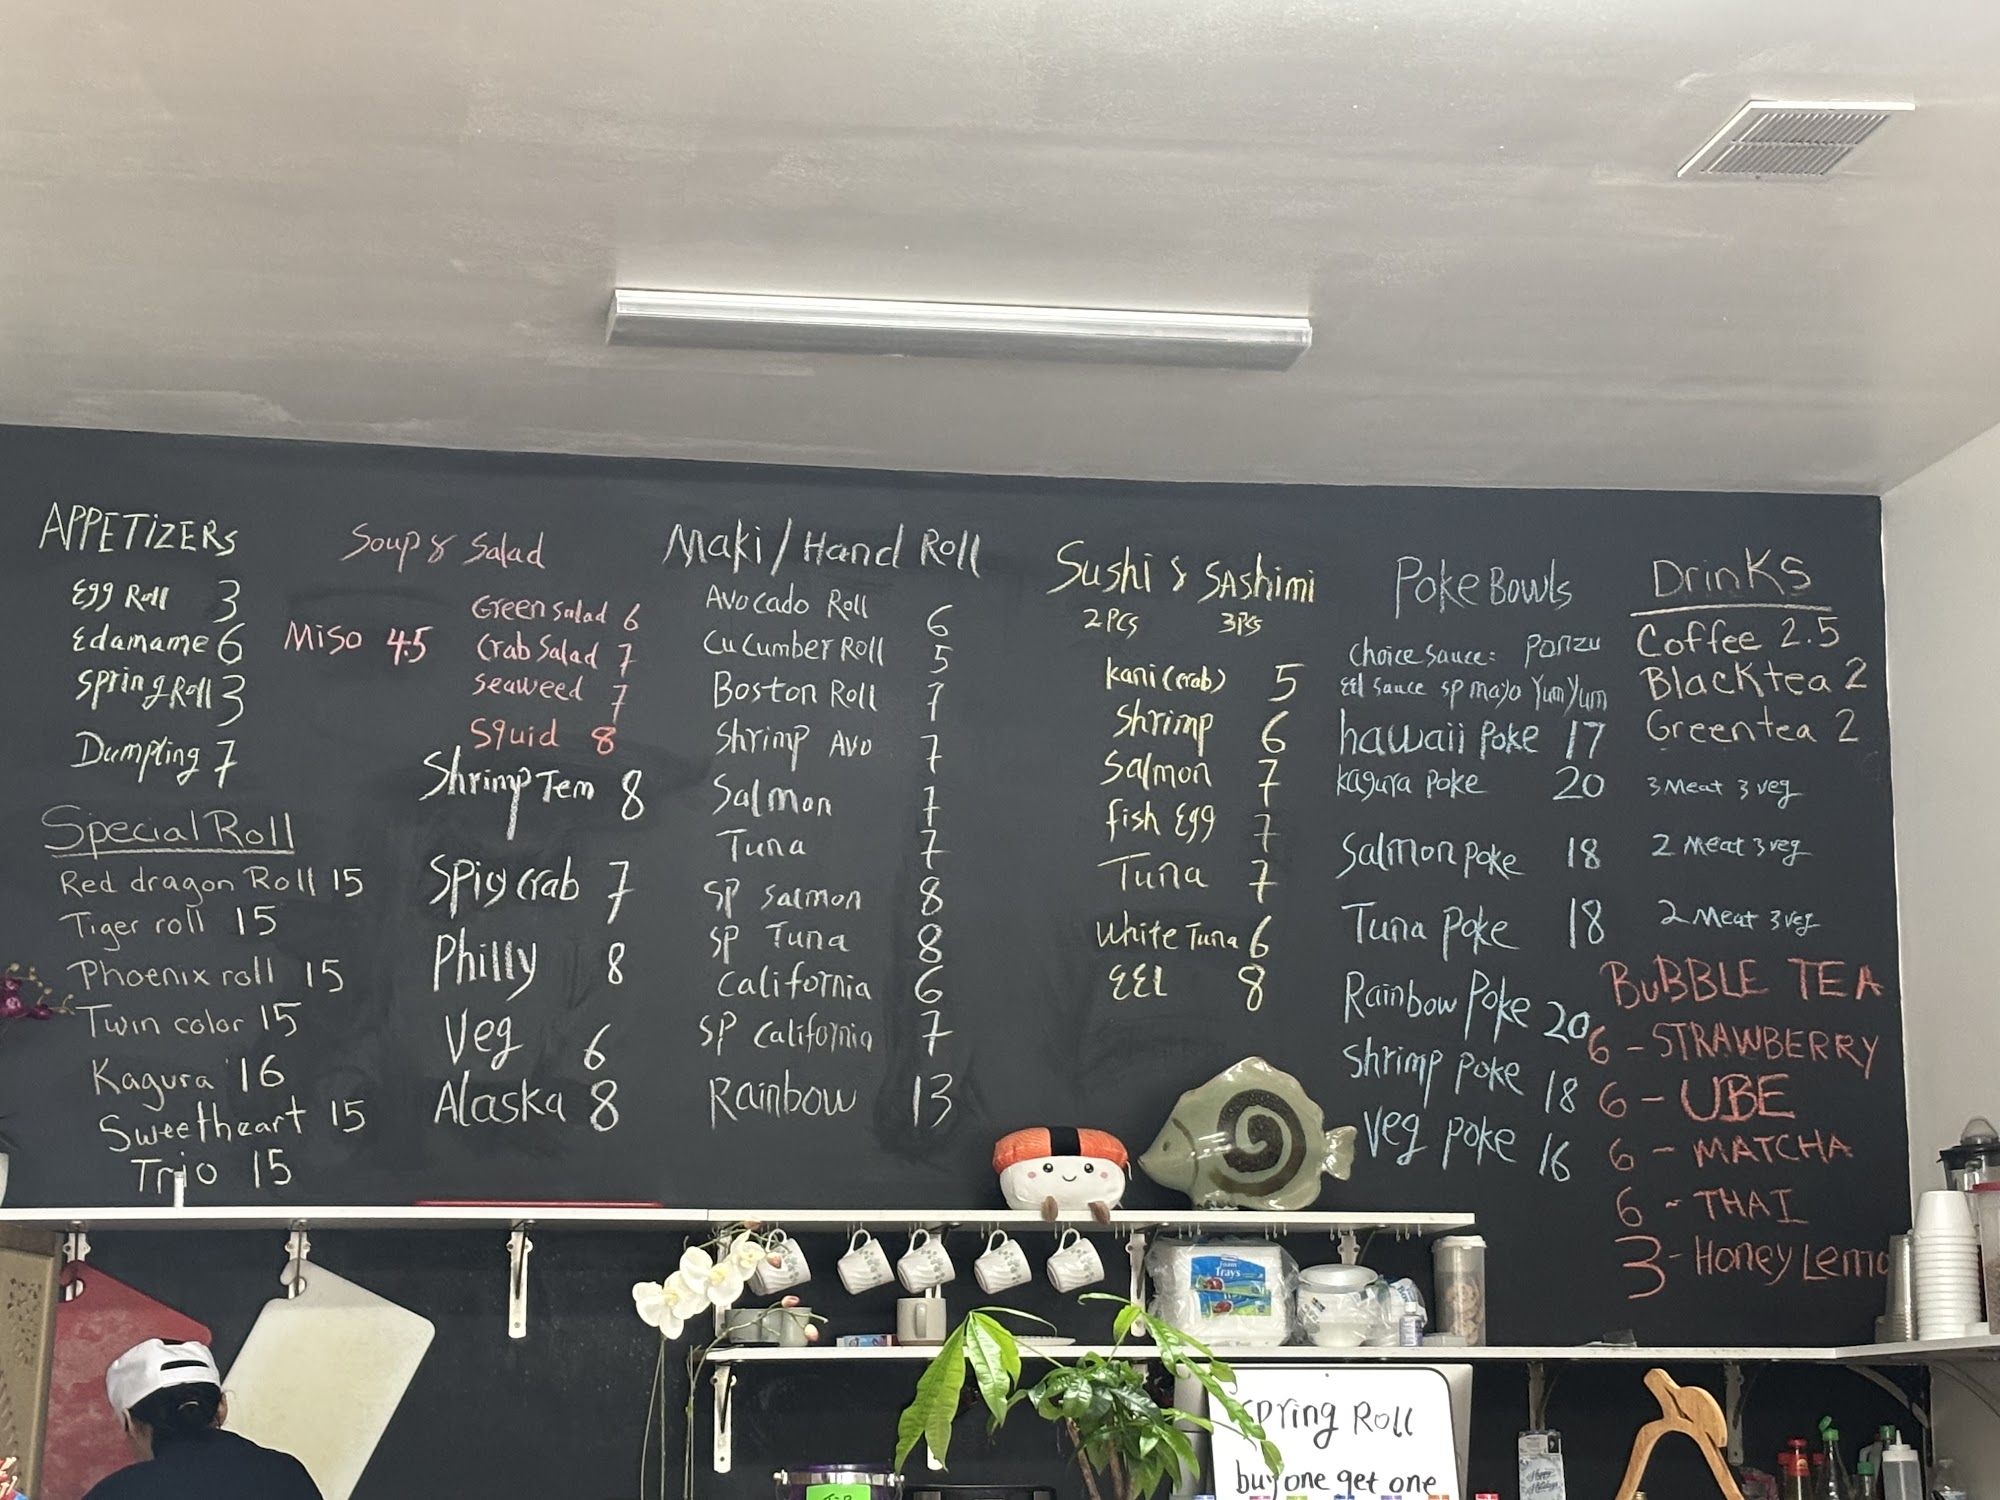 APPETIZERS
Egg Roll 3
Edamame 6
Spring Roll 3
Dumpling 7
Special Roll
Red dragon Roll 15
Tiger roll 15
Phoenix roll 15
Twin color 15
Kagura 16
Sweetheart 15
Trio 15
Soup & Salad
Miso 4.5
Green Salad 6
Crab Salad 7
Seaweed 7
Squid 8
Shrimp Tem 8
Spicy Crab 7
Philly 8
Veg 6
Alaska 8
Maki / Hand Roll
Avocado Roll 6
Cucumber Roll 5
Boston Roll 7
Shrimp Avo 7
Salmon 7
Tuna 7
SP Salmon 8
SP Tuna 8
California 6
SP California 7
Rainbow 13
Sushi & SAshimi
2 PCS 3 PCS
kani (crab) 5
Shrimp 6
Salmon 7
fish Egg 7
Tuna 7
White Tuna 6
EEL 8
Poke Bowls
Choice Sauce: Ponzu
Eel Sauce SP mayo Yum Yum
hawaii Poke 17
kagura Poke 20 3 Meat 3 veg
Salmon Poke 18 2 Meat 3 veg
Tuna Poke 18 2 Meat 3 veg
Rainbow Poke 20
Shrimp Poke 18
Veg Poke 16
DrinKs
Coffee 2.5
Black tea 2
Green tea 2
BuBBLE TEA
6 - STRAWBERRY
6 - UBE
6 - MATCHA
6 - THAI
3 - Honey Lemo
Foam
Trays
Spring Roll
buy one get one